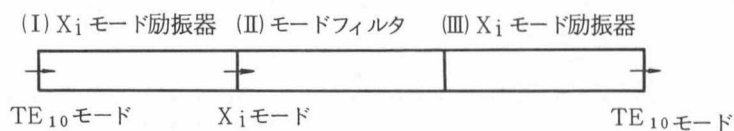 (I) Xiモード励振器 (II)モードフィルタ (III) Xiモード励振器
TE10モード Xiモード TE10モード